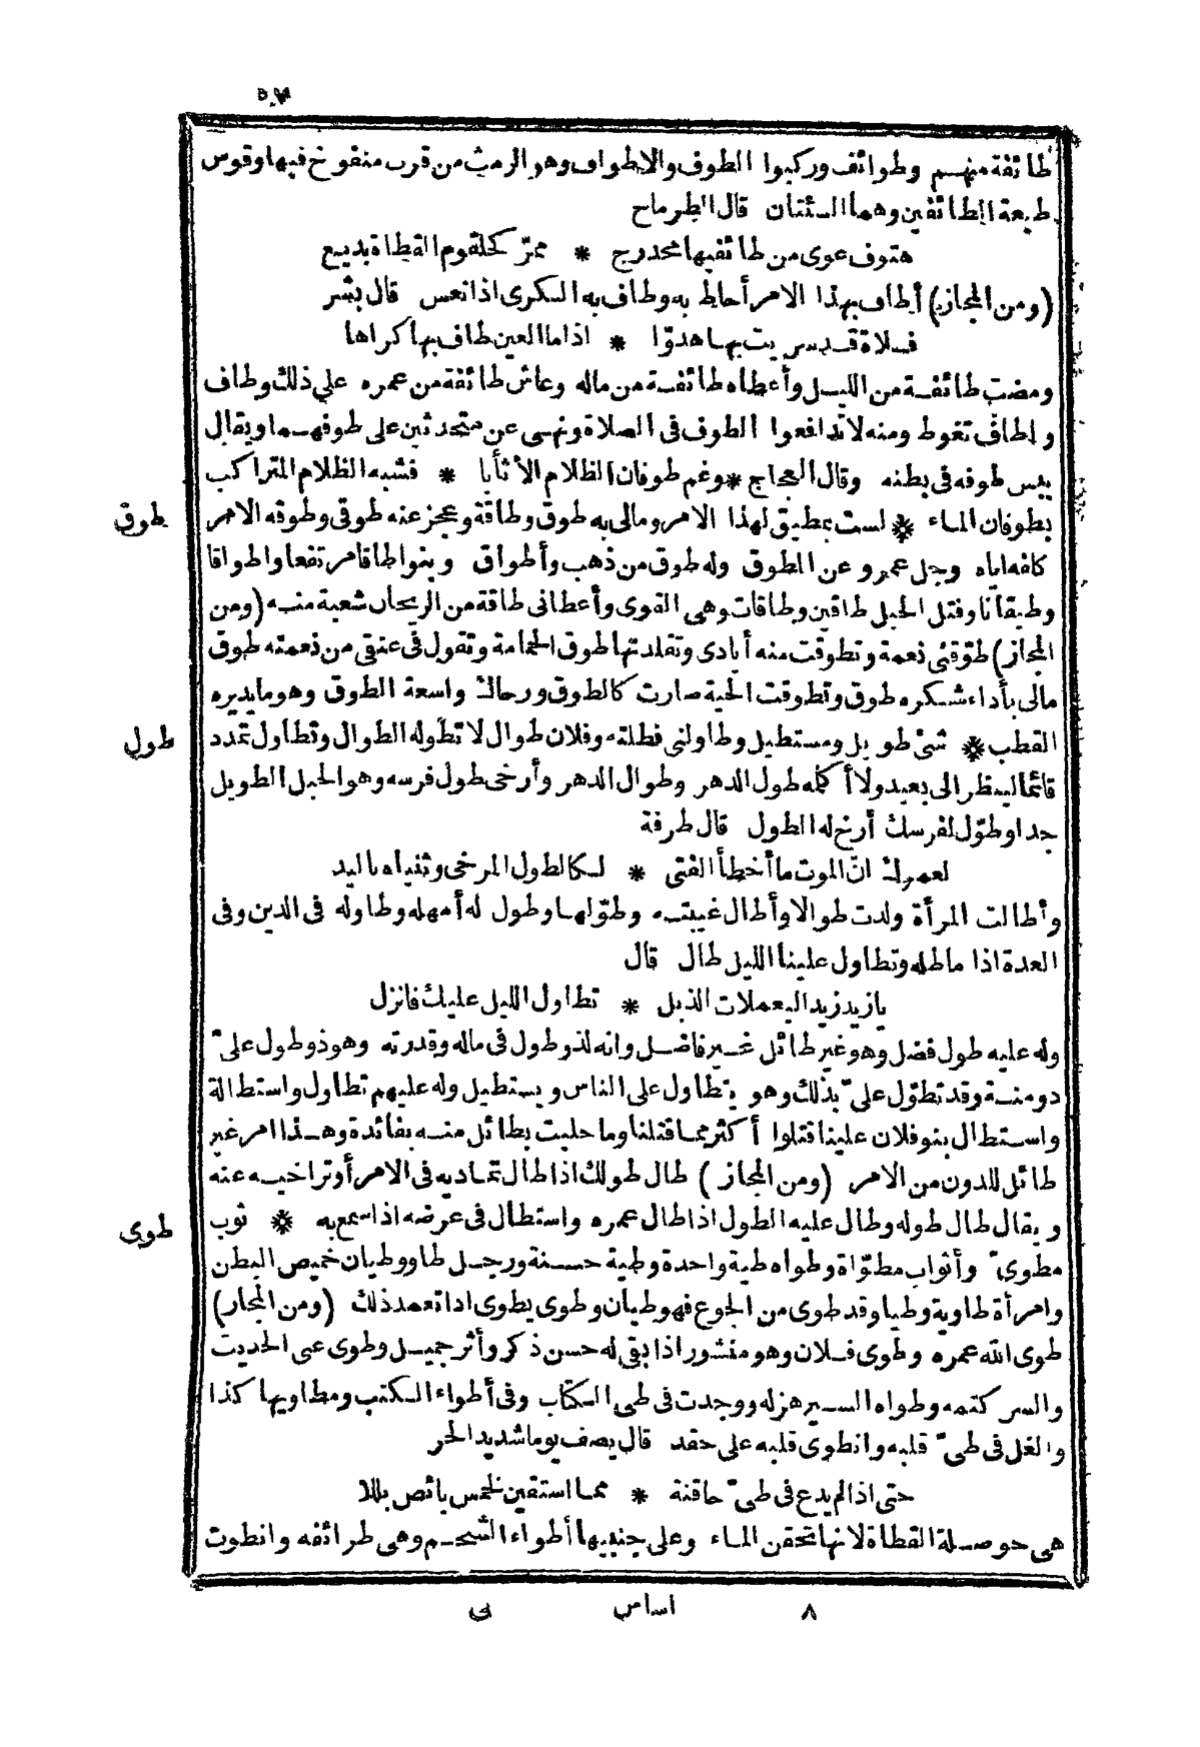 طائفة منهم وطوائف وركبوا الطوف والاطواف وهو الرمث من قرب منفوخ فيها وقوس
طيعة الطائفين وهما السئتان قال الطرماح
هتوف عوى من طائفيها محدرج * ممرّ كحلقوم القطاة بديع
(ومن المجاز) أطاف بهذا الامر أحاط به وطاف به السكرى اذا نعس قال بشر
فلاة قد سريت بها هدوّا * اذا ما العين طاف بها كراها
ومضت طائفة من الليل وأعطاه طائفة من ماله وعاش طائفة من عمره على ذلك وطاف
واطاف تغوط ومنه لا تدافعوا الطوف فى الصلاة ونهى عن متحدثين على طوفهما ويقال
يبس طوفه فى بطنه وقال العجاج * وغم طوفان الظلام الأثأبا * فشبه الظلام المتراكب
طوق
بطوفان الماء * لست بمطيق لهذا الامر ومالى به طوق وطاقة وعجز عنه طوقى وطوقه الامر
كلفه اياه وجل عمرو عن الطوق وله طوق من ذهب وأطواق وبنوا طاقا مرتفعا واطواقا
وطيقانا وفتل الحبل طاقين وطاقات وهى القوى وأعطانى طاقة من الريحان شعبة منه (ومن
المجاز) طوّقنى نعمة وتطوقت منه أيادى وتقلدتها طوق الحمامة وتقول فى عنقى من نعمته طوق
مالى بأداء شكره طوق وتطوقت الحية صارت كالطوق ورحاك واسعة الطوق وهو ما يديره
طول
القطب * شئ طويل ومستطيل وطاولنى فطلته وفلان طوال لا تطوله الطوال وتطاول تمدد
قائما لينظر الى بعيد ولا أكلمه طول الدهر وطوال الدهر وأرخى طول فرسه وهو الحبل الطويل
جدا وطوّل لفرسك أرخ له الطول قال طرفة
لعمرك انّ الموت ما أخطأ الفتى * لكالطول المرخى وثنياه باليد
وأطالت المرأة ولدت طوالا وأطال غيبته وطوّلها وطول له أمهله وطاوله فى الدين وفى
العدة اذا ماطله وتطاول علينا الليل طال قال
يا زيد زيد اليعملات الذبل * تطاول الليل عليك فانزل
وله عليه طول فضل وهو غير طائل غير فاضل وانه لذو طول فى ماله وقدرته وهو ذو طول علىّ
ذو منة وقد تطوّل علىّ بذلك وهو يتطاول على الناس ويستطيل وله عليهم تطاول واستطالة
واستطال بنو فلان علينا قتلوا أكثر مما قتلنا وما حليت بطائل منه بفائدة وهذا امر غير
طائل للدون من الامر (ومن المجاز) طال طولك اذا طال تماديه فى الامر أو تراخيه عنه
طوى
ويقال طال طوله وطال عليه الطول اذا طال عمره واستطال فى عرضه اذا سمع به * ثوب
مطوىّ وأثواب مطوّاة وطواه طية واحدة وطية حسنة ورجل طاو وطيان خميص البطن
وامرأة طاوية وطيا وقد طوى من الجوع فهو طيان وطوى يطوى اذا تعمد ذلك (ومن المجاز)
طوى الله عمره وطوى فلان وهو منشور اذا بقى له حسن ذكر وأثر جميل وطوى عنى الحديث
والسر كتمه وطواه السير هزله ووجدت فى طى الكتاب وفى أطواء الكتب ومطاويها كذا
والغل فى طىّ قلبه وانطوى قلبه على حقد قال يصف يوما شديد الحر
حتى اذا لم يدع فى طىّ حاقنة * مما استقين لخمس بائص بللا
هى حوصلة القطاة لانها تحقن الماء وعلى جنبيها أطواء الشحم وهى طرائفه وانطوت
٨ اساس نى